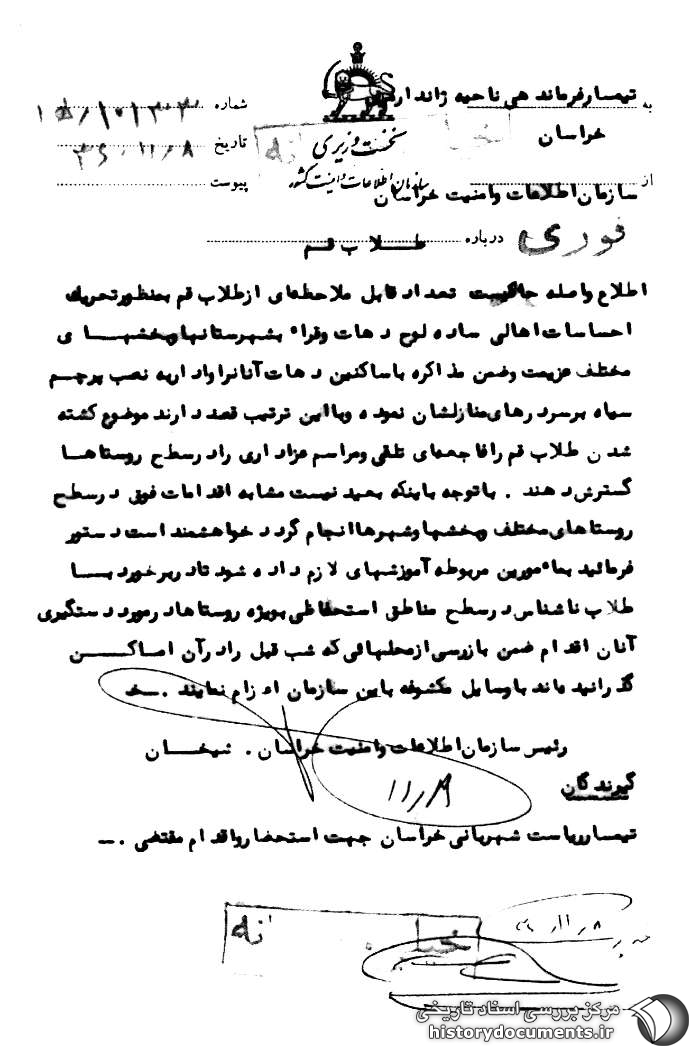 به تیمسار فرماندهی ناحیه ژاندارمری
خراسان
از سازمان اطلاعات و امنیت خراسان
نخست وزیری
سازمان اطلاعات و امنیت کشور
شماره ۱۵/۱۰۱۳۰۳۰
تاریخ ۳۶/۱۱/۸
پیوست
فوری
درباره طلاب قم
اطلاع واصله حاکیست تعداد قابل ملاحظه‌ای از طلاب قم بمنظور تحریک
احساسات اهالی ساده لوح دهات و قراء بشهرستانها و بخشهای
مختلف عزیمت و ضمن مذاکره با ساکنین دهات آنانرا وادار به نصب پرچم
سیاه بر سر درهای منازلشان نموده و باین ترتیب قصد دارند موضوع کشته
شدن طلاب قم را فاجعه‌ای تلقی و مراسم عزاداری را در سطح روستاها
گسترش دهند . با توجه باینکه بعید نیست مشابه اقدامات فوق در سطح
روستاهای مختلف و بخشها و شهرها انجام گردد خواهشمند است دستور
فرمائید بماءمورین مربوطه آموزشهای لازم داده شود تا در برخورد با
طلاب ناشناس در سطح مناطق استحفاظی بویژه روستاها در مورد دستگیری
آنان اقدام ضمن بازرسی از محلهائی که شب قبل را در آن اماکن
گذرانیده‌اند با وسایل مکشوفه باین سازمان اعزام نمایند .
رئیس سازمان اطلاعات و امنیت خراسان . شیخان
۱۱/۹
گیرندگان
تیمسار ریاست شهربانی خراسان جهت استحضار و اقدام مقتضی .
۱۱/۸
مرکز بررسی اسناد تاریخی
historydocuments.ir